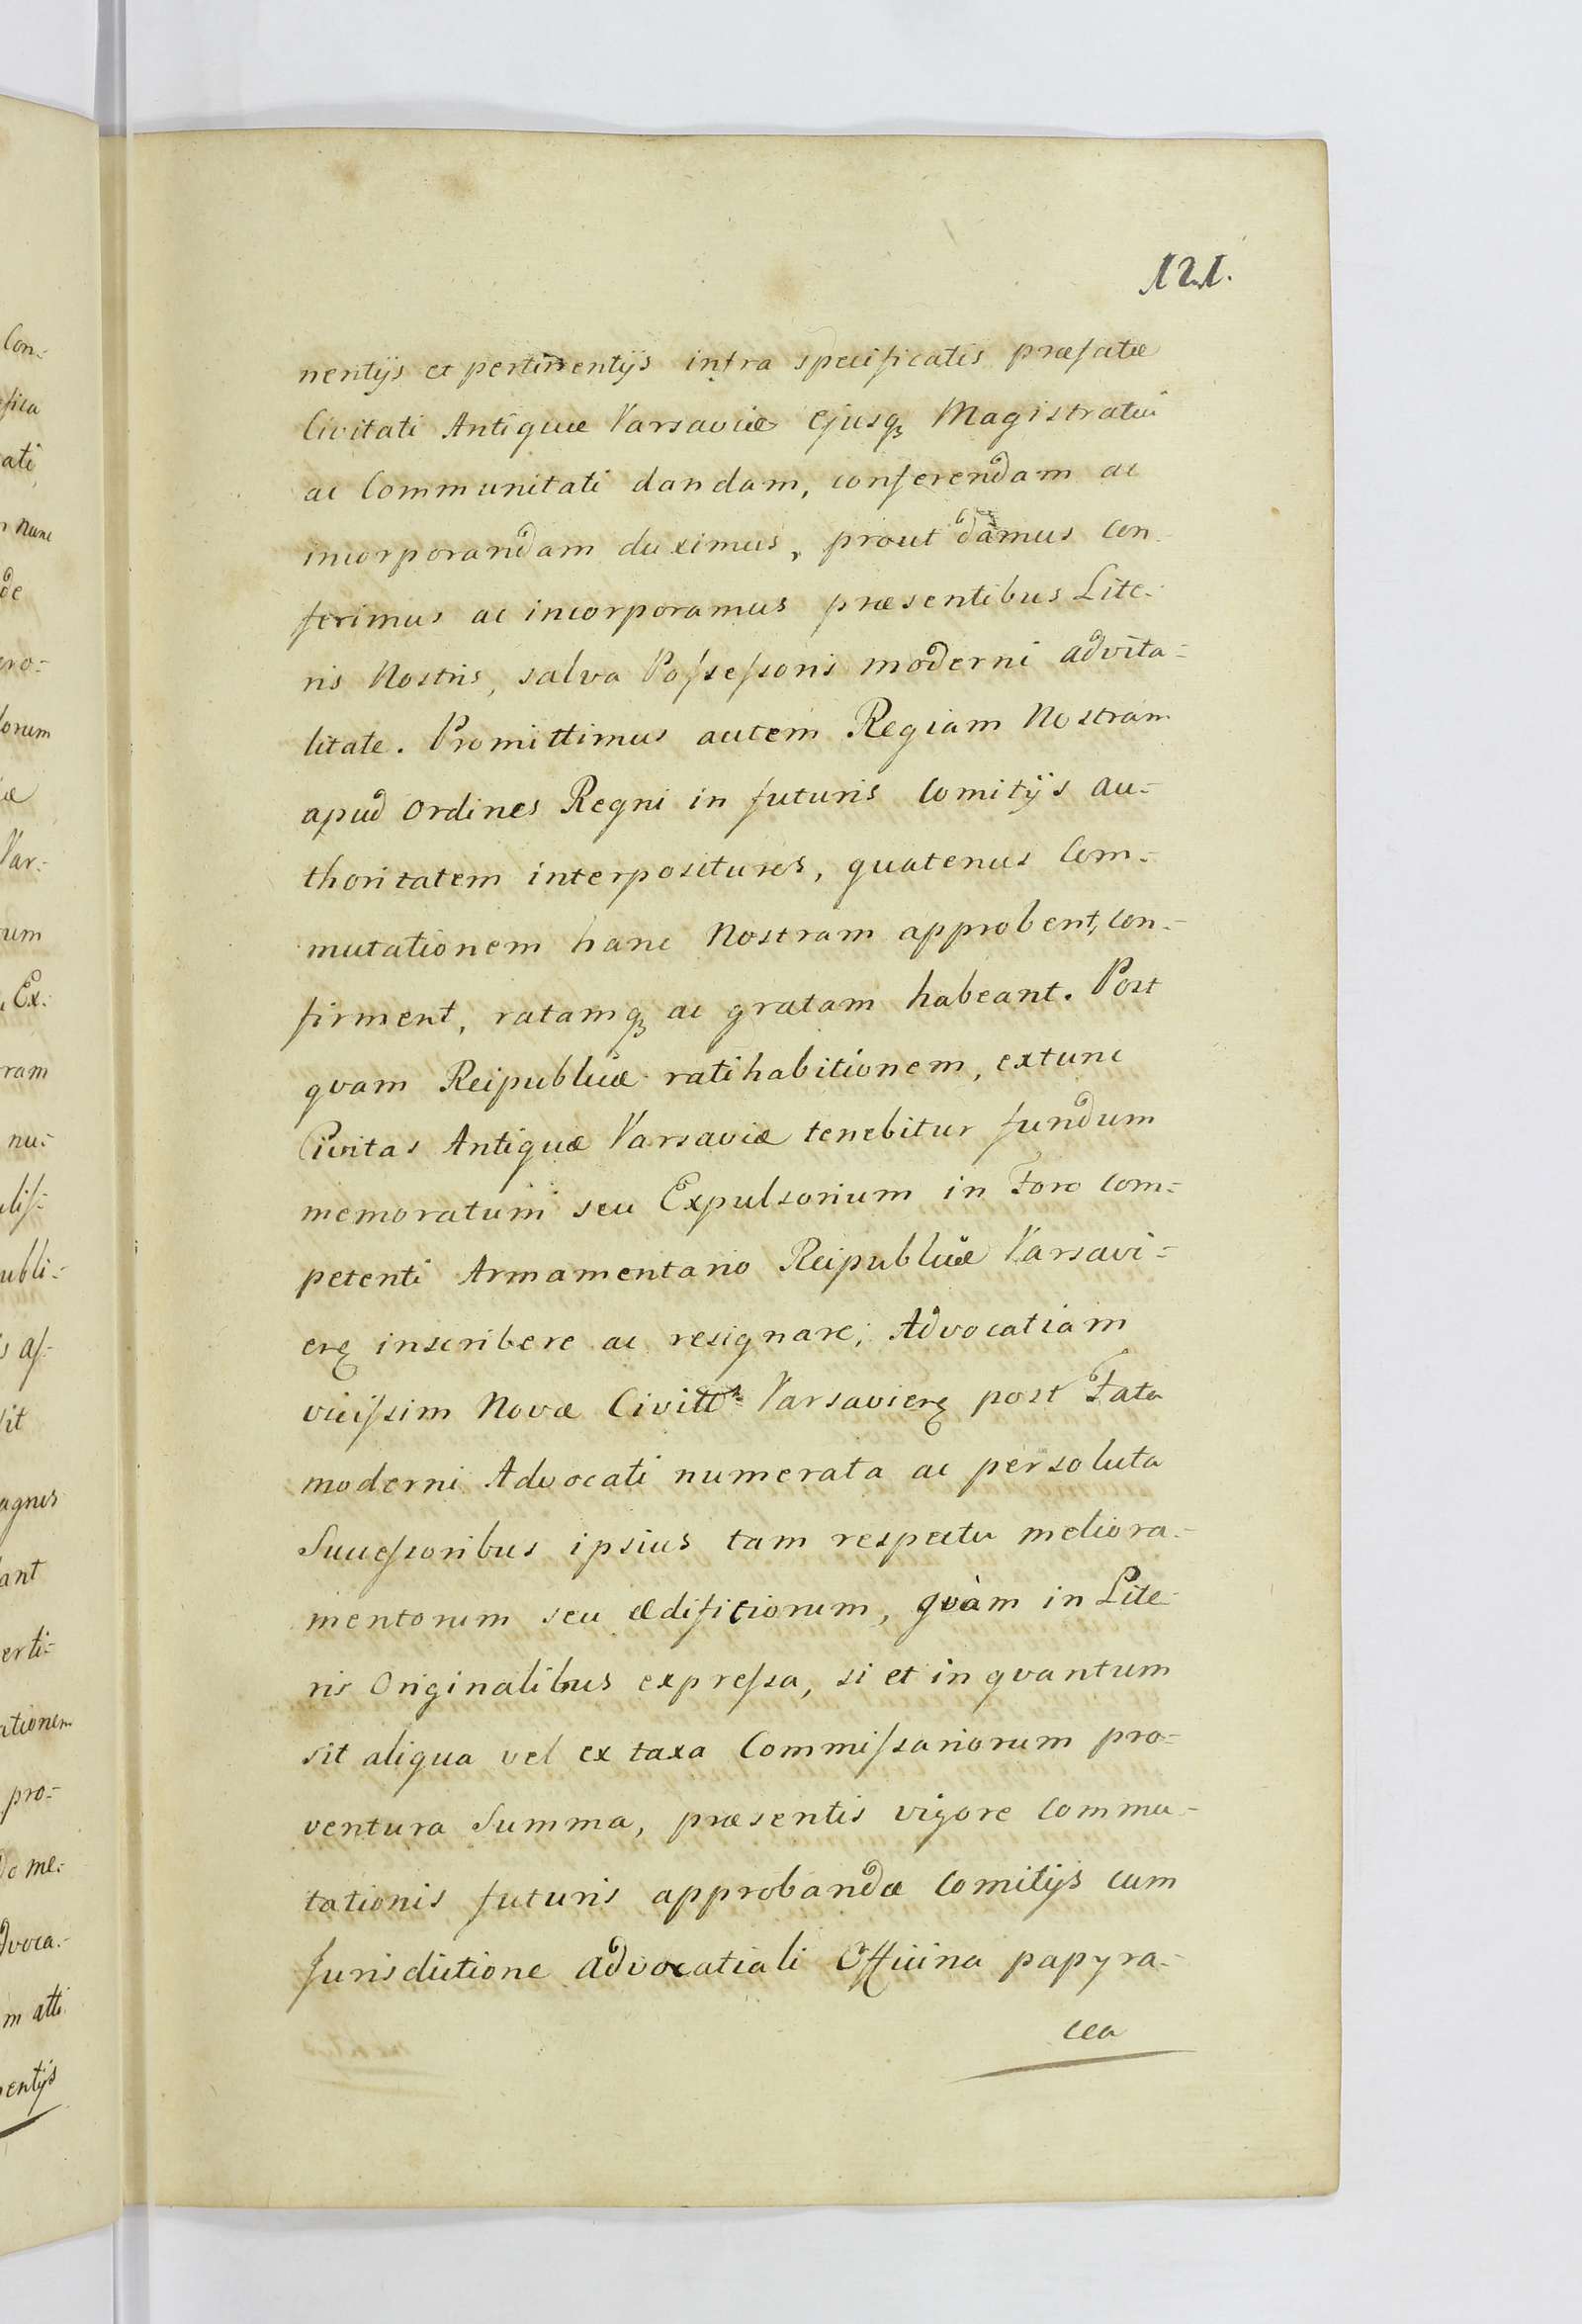 121.
nentijs et pertinentijs infra specificatis præfatæ
Civitati Antiquæ Varsaviæ Ejusq₃ Magistratui
ac Communitati dandam, conferendam ac
incorporandam duximus, prout damus con
ferimus ac incorporamus præsentibus Lite-
ris Nostris, salva Poſseſsoris moderni advita=
litate. Promittimus autem Regiam Nostram
apud Ordines Regni in futuris Comitijs au=
thoritatem interposituros, quatenus Com=
mutationem hanc Nostram approbent, con=
firment, ratamq₃ ac gratam habeant. Post
qvam Reipublicæ ratihabitionem, extunc
Civitas Antiquæ Varsaviæ tenebitur fundum
memoratum seu Expulsorium in Foro com=
petenti Armamentario Reipublicæ Varsavi=
eñ inscribere ac resignare; Advocatiam
viciſsim Novæ Civittis Varsavieñ post Fata
moderni Advocati numerata ac persoluta
Succeſsoribus ipsius tam respectu meliora=
mentorum seu ædificiorum, qvàm in Lite
ris Originalibus expreſsa, si et in qvantum
sit aliqua vel ex taxa Commiſsariorum pro=
ventura Summa, præsentis vigore Commu=
tationis futuris approbandæ Comitijs cum
Jurisdictione Advocatiali Officina papyra=
cea
Con=
fica
ati
nunc
de
ero=
lorum
iæ
Var=
rum
Ex=
ram
nu=
liſ=
ubli=
s aſ=
sit
agnis
ant
erti=
ationem
pro=
do me=
dvoca=
m atti
nentijs